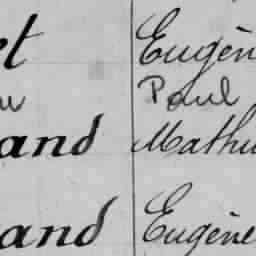 et Eugèn
Paul
and Mathu
and Eugène